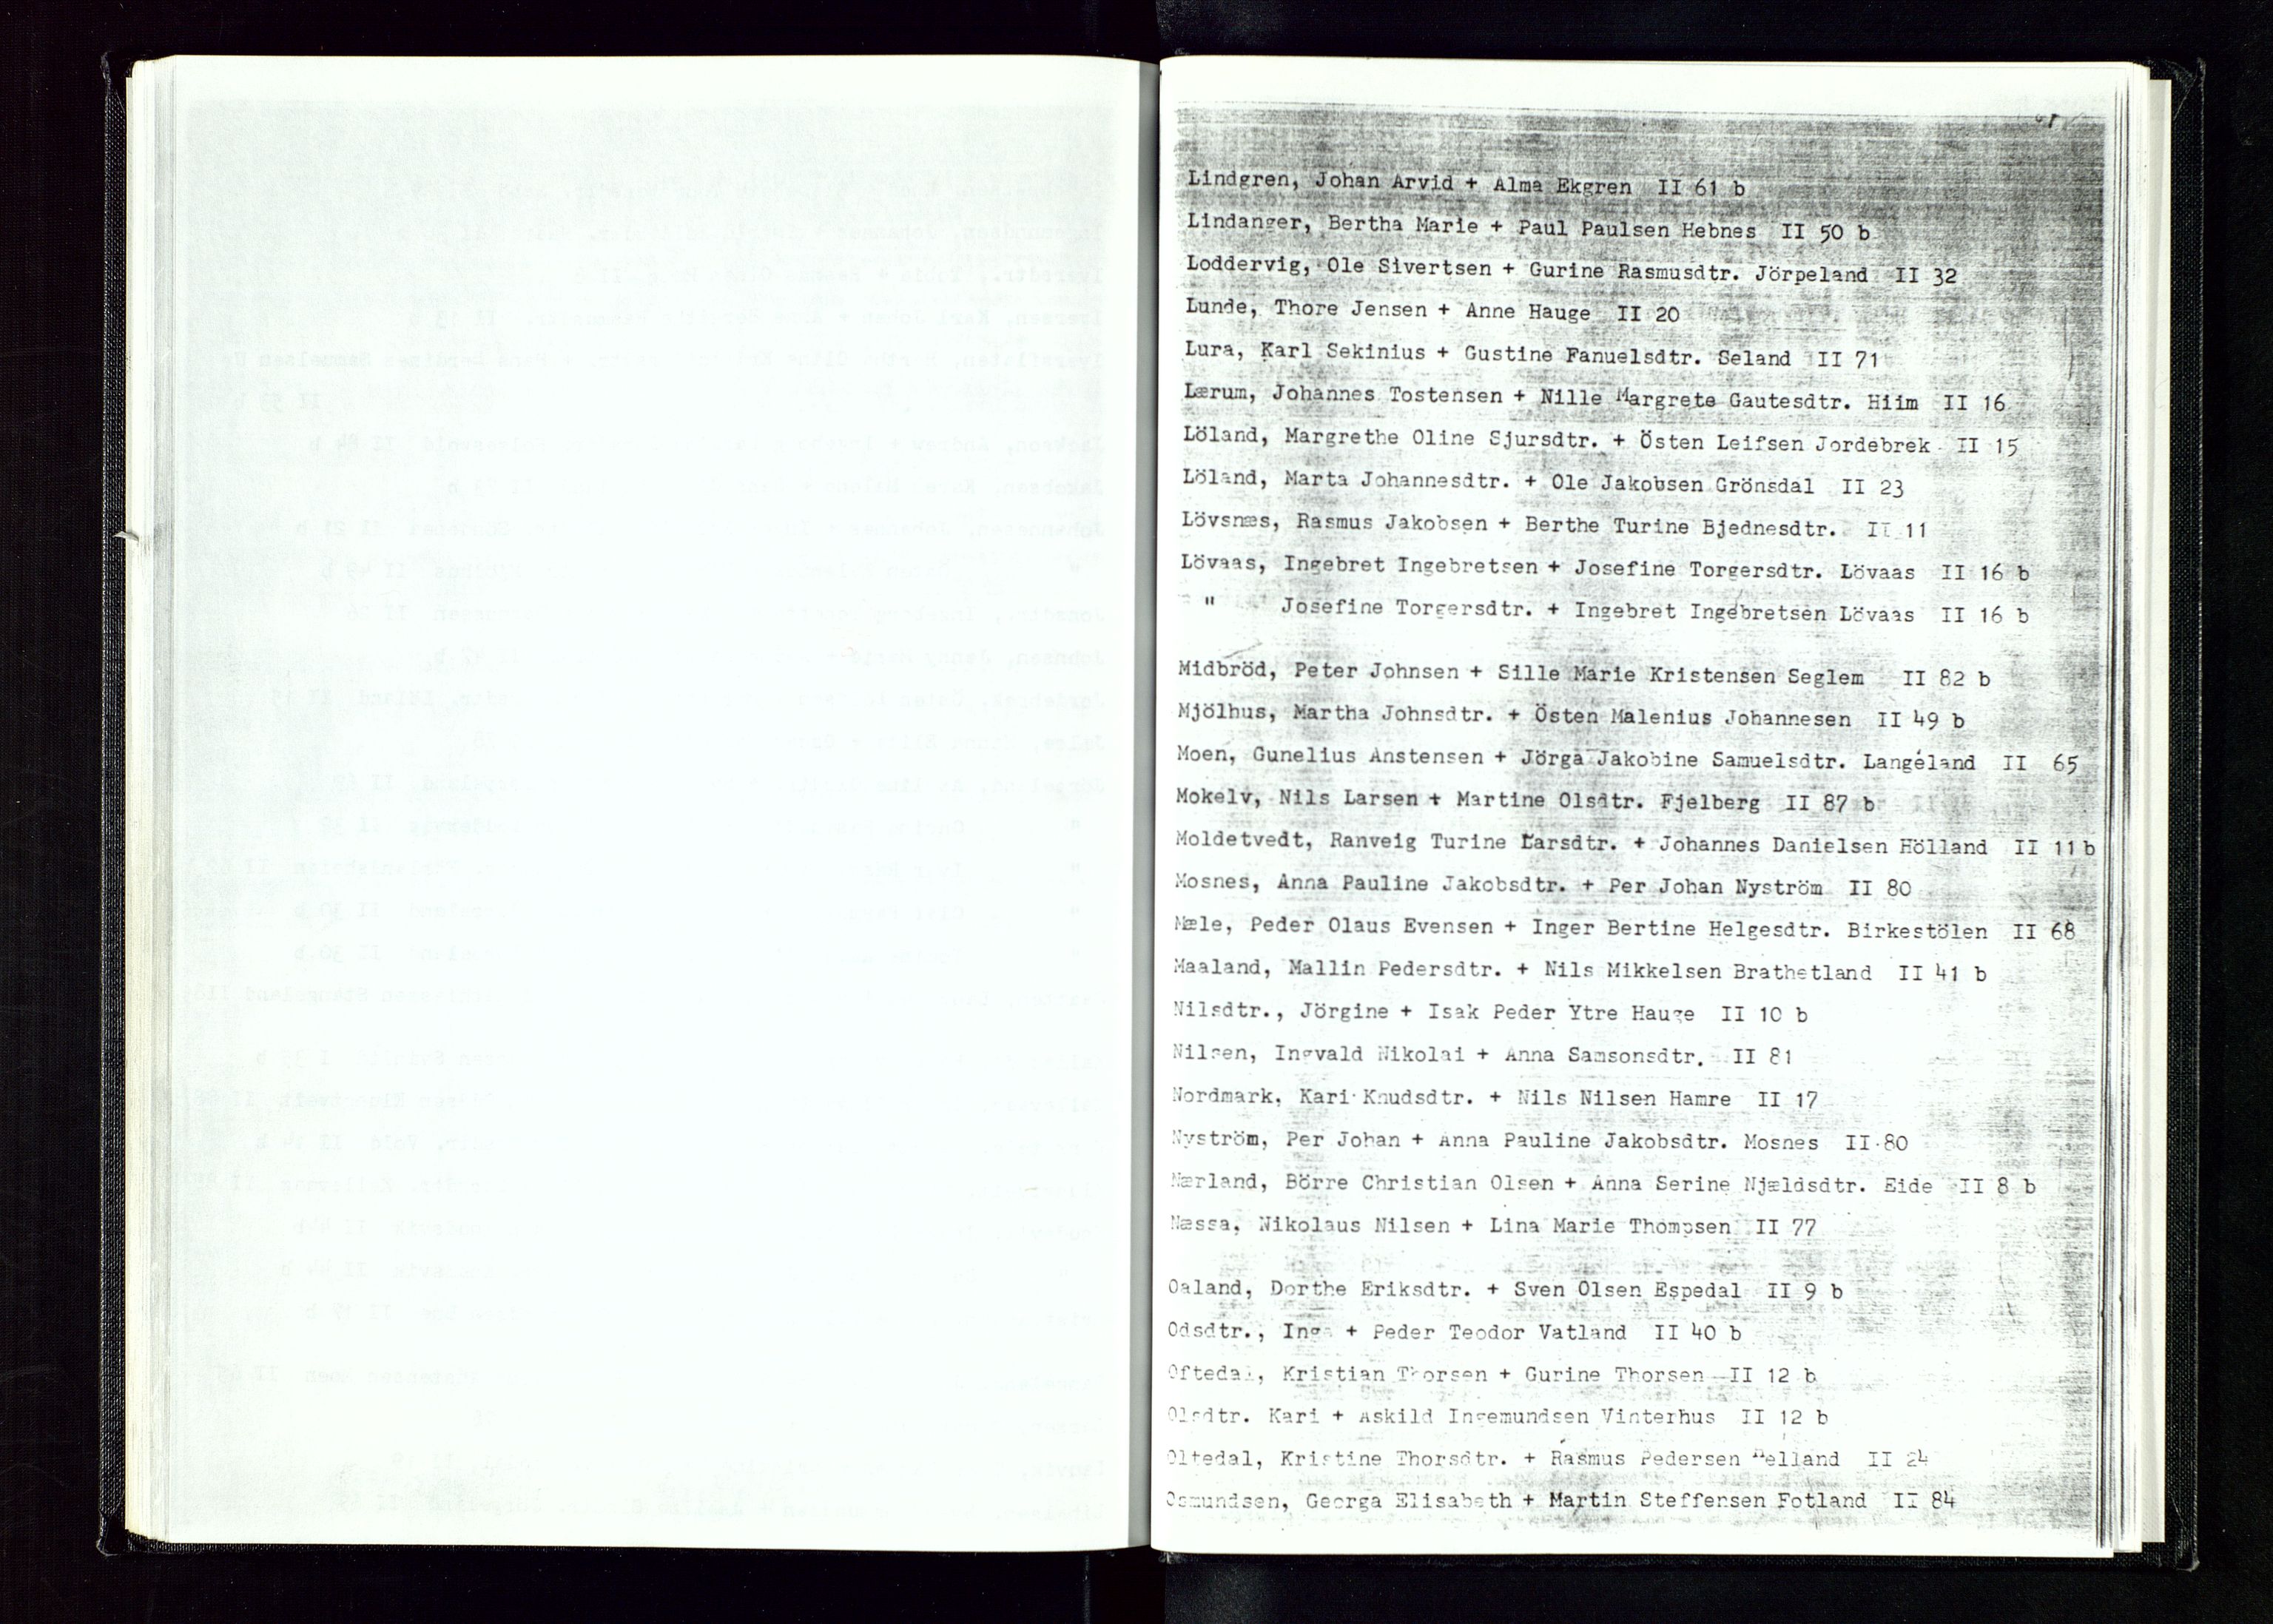 Lindgren, Johan Arvid + Alma Ekgren II 61 b
Lindanger, Bertha Marie + Paul Paulsen Hebnes II 50 b
Loddervig, Ole Sivertsen + Gurine Rasmusdtr. Jörpeland II 32
Lunde, Thore Jensen + Anne Hauge II 20
Lura, Karl Sekinius + Gustine Fanuelsdtr. Seland II 71
Lærum, Johannes Tostensen + Nille Margrete Gautesdtr. Hiim II 16
Löland, Margrethe Oline Sjursdtr. + Östen Leifsen Jordebrek II 15
Löland, Marta Johannesdtr. + Ole Jakobsen Grönsdal II 23
Lövsnæs, Rasmus Jakobsen + Berthe Turine Bjednesdtr. II 11
Lövaas, Ingebret Ingebretsen + Josefine Torgersdtr. Lövaas II 16 b
" Josefine Torgersdtr. + Ingebret Ingebretsen Lövaas II 16 b
Midbröd, Peter Johnsen + Sille Marie Kristensen Seglem II 82 b
Mjölhus, Martha Johnsdtr. + Östen Malenius Johannesen II 49 b
Moen, Gunelius Anstensen + Jörga Jakobine Samuelsdtr. Langeland II 65
Mokelv, Nils Larsen + Martine Olsdtr. Fjelberg II 87 b
Moldetvedt, Ranveig Turine Larsdtr. + Johannes Danielsen Hölland II 11 b
Mosnes, Anna Pauline Jakobsdtr. + Per Johan Nyström II 80
Mæle, Peder Olaus Evensen + Inger Bertine Helgesdtr. Birkestölen II 68
Maaland, Mallin Pedersdtr. + Nils Mikkelsen Brathetland II 41 b
Nilsdtr., Jörgine + Isak Peder Ytre Hauge II 10 b
Nilsen, Ingvald Nikolai + Anna Samsonsdtr. II 81
Nordmark, Kari Knudsdtr. + Nils Nilsen Hamre II 17
Nyström, Per Johan + Anna Pauline Jakobsdtr. Mosnes II 80
Nærland, Börre Christian Olsen + Anna Serine Njældsdtr. Eide II 8 b
Næssa, Nikolaus Nilsen + Lina Marie Thompsen II 77
Oaland, Dorthe Eriksdtr. + Sven Olsen Espedal II 9 b
Odsdtr., Inga + Peder Teodor Vatland II 40 b
Oftedal, Kristian Thorsen + Gurine Thorsen II 12 b
Olsdtr. Kari + Askild Ingemundsen Vinterhus II 12 b
Oltedal, Kristine Thorsdtr. + Rasmus Pedersen Helland II 24
Osmundsen, Georga Elisabeth + Martin Steffensen Fotland II 84